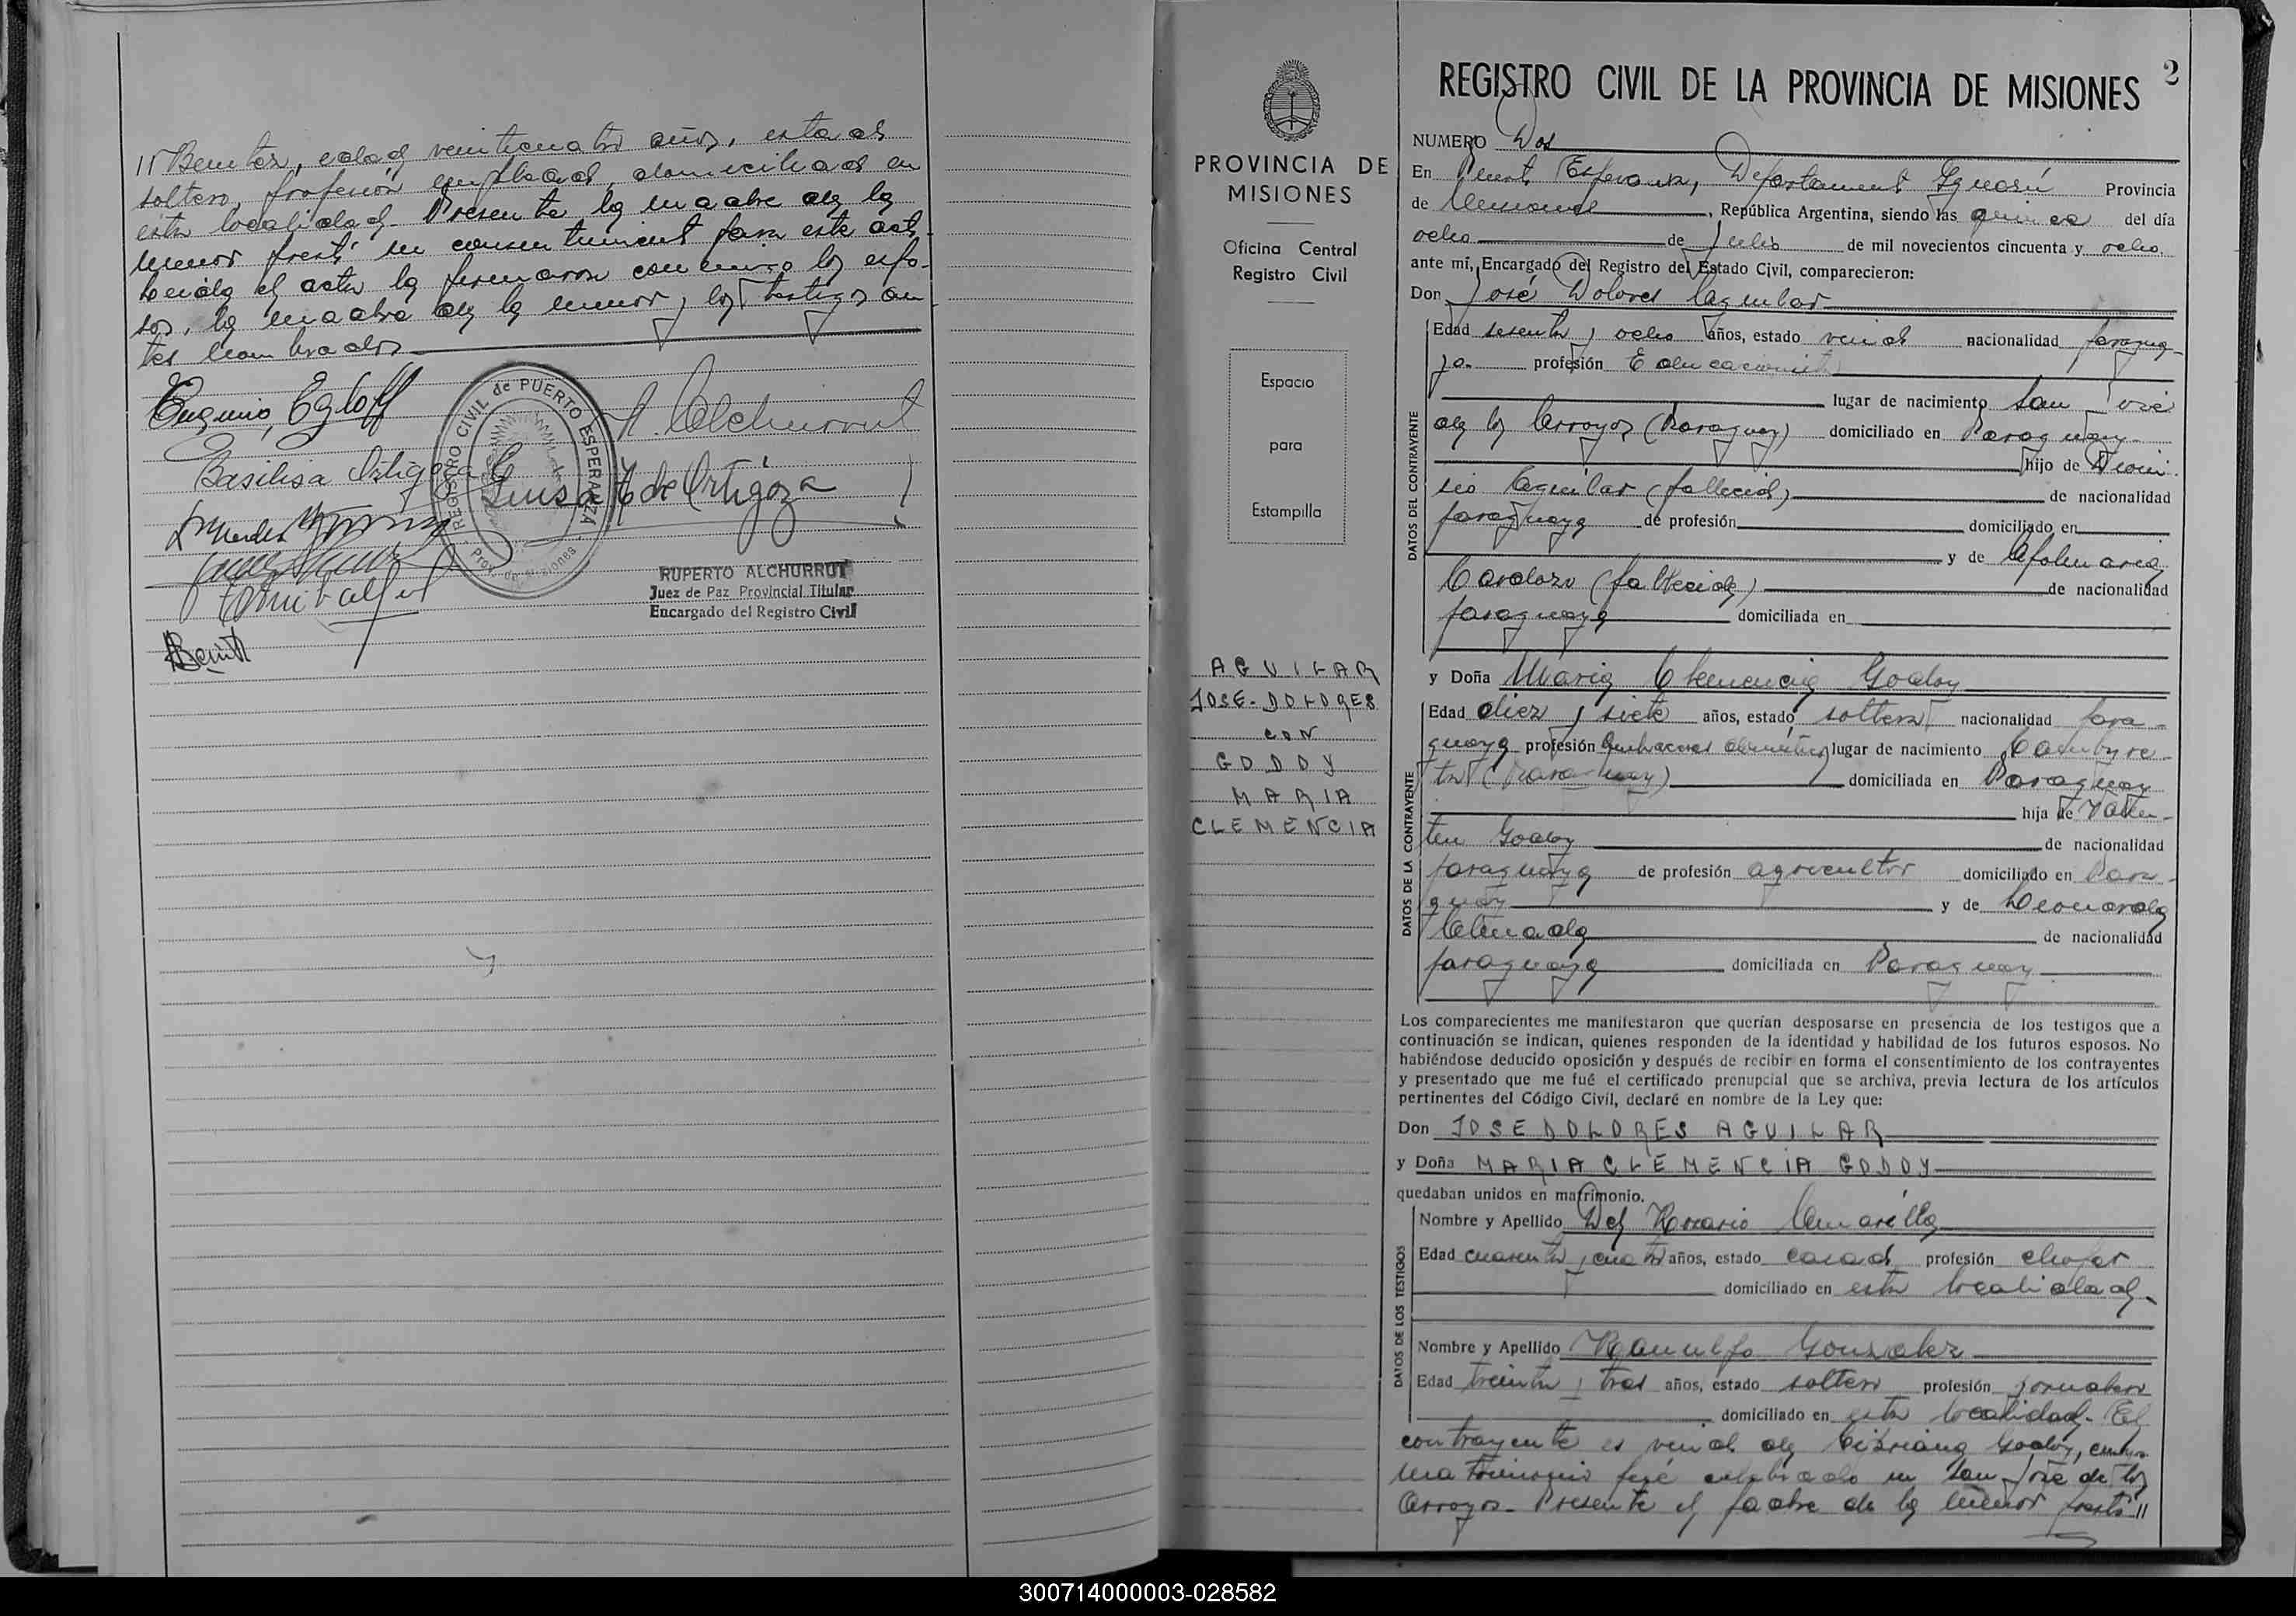 // Benitez, edad veinticuatro años, estado
soltero, profesión empleado, domiciliado en
esta localidad. Presente la madre de la
menor prestó su consentimiento para este acto.
Leída el acta la firmaron conmigo los espo-
sos, la madre de la menor y los testigos an-
tes nombrados
Eugenio Egloff
R. Alchurrut
Basilisa Ortigoza
Luisa de Ortigoza
REGISTRO CIVIL de PUERTO ESPERANZA
Prov. de Misiones
RUPERTO ALCHURRUT
Juez de Paz Provincial Titular
Encargado del Registro Civil
Benit
PROVINCIA DE
MISIONES
Oficina Central
Registro Civil
Espacio
para
Estampilla
AGUILAR
JOSE-DOLORES
CON
GODOY
MARIA
CLEMENCIA
2
REGISTRO CIVIL DE LA PROVINCIA DE MISIONES
NUMERO Dos
En Puerto Esperanza, Departamento Iguazú Provincia
de Misiones, República Argentina, siendo las quince del día
ocho de Julio de mil novecientos cincuenta y ocho,
ante mí, Encargado del Registro del Estado Civil, comparecieron:
Don José Dolores Aguilar
DATOS DEL CONTRAYENTE
Edad sesenta y ocho años, estado viudo nacionalidad paragua-
ya profesión Educacionista
lugar de nacimiento San José
de los Arroyos (Paraguay) domiciliado en Paraguay
hijo de Dioni-
sio Aguilar (fallecido) de nacionalidad
paraguaya de profesión domiciliado en
y de Apolinaria
Cardozo (fallecida) de nacionalidad
paraguaya domiciliada en
y Doña María Clemencia Godoy
DATOS DE LA CONTRAYENTE
Edad diez y siete años, estado soltera nacionalidad para-
guaya profesión quehaceres domésticos lugar de nacimiento Caabyre-
tá (Paraguay) domiciliada en Paraguay
hija de Valen-
tín Godoy de nacionalidad
paraguaya de profesión agricultor domiciliado en Para-
guay y de Leonarda
Almada de nacionalidad
paraguaya domiciliada en Paraguay
Los comparecientes me manifestaron que querían desposarse en presencia de los testigos que a
continuación se indican, quienes responden de la identidad y habilidad de los futuros esposos. No
habiéndose deducido oposición y después de recibir en forma el consentimiento de los contrayentes
y presentado que me fué el certificado prenupcial que se archiva, previa lectura de los artículos
pertinentes del Código Civil, declaré en nombre de la Ley que:
Don JOSE DOLORES AGUILAR
y Doña MARIA CLEMENCIA GODOY
quedaban unidos en matrimonio.
DATOS DE LOS TESTIGOS
Nombre y Apellido Del Rosario Amarilla
Edad cuarenta y cuatro años, estado casado profesión chofer
domiciliado en esta localidad.
Nombre y Apellido Ranulfo Gonzalez
Edad treinta y tres años, estado soltero profesión jornalero
domiciliado en esta localidad. El
contrayente es viudo de Cipriana Godoy, cuyo
matrimonio fué celebrado en San José de los
Arroyos. Presente el padre de la menor prestó //
300714000003-028582